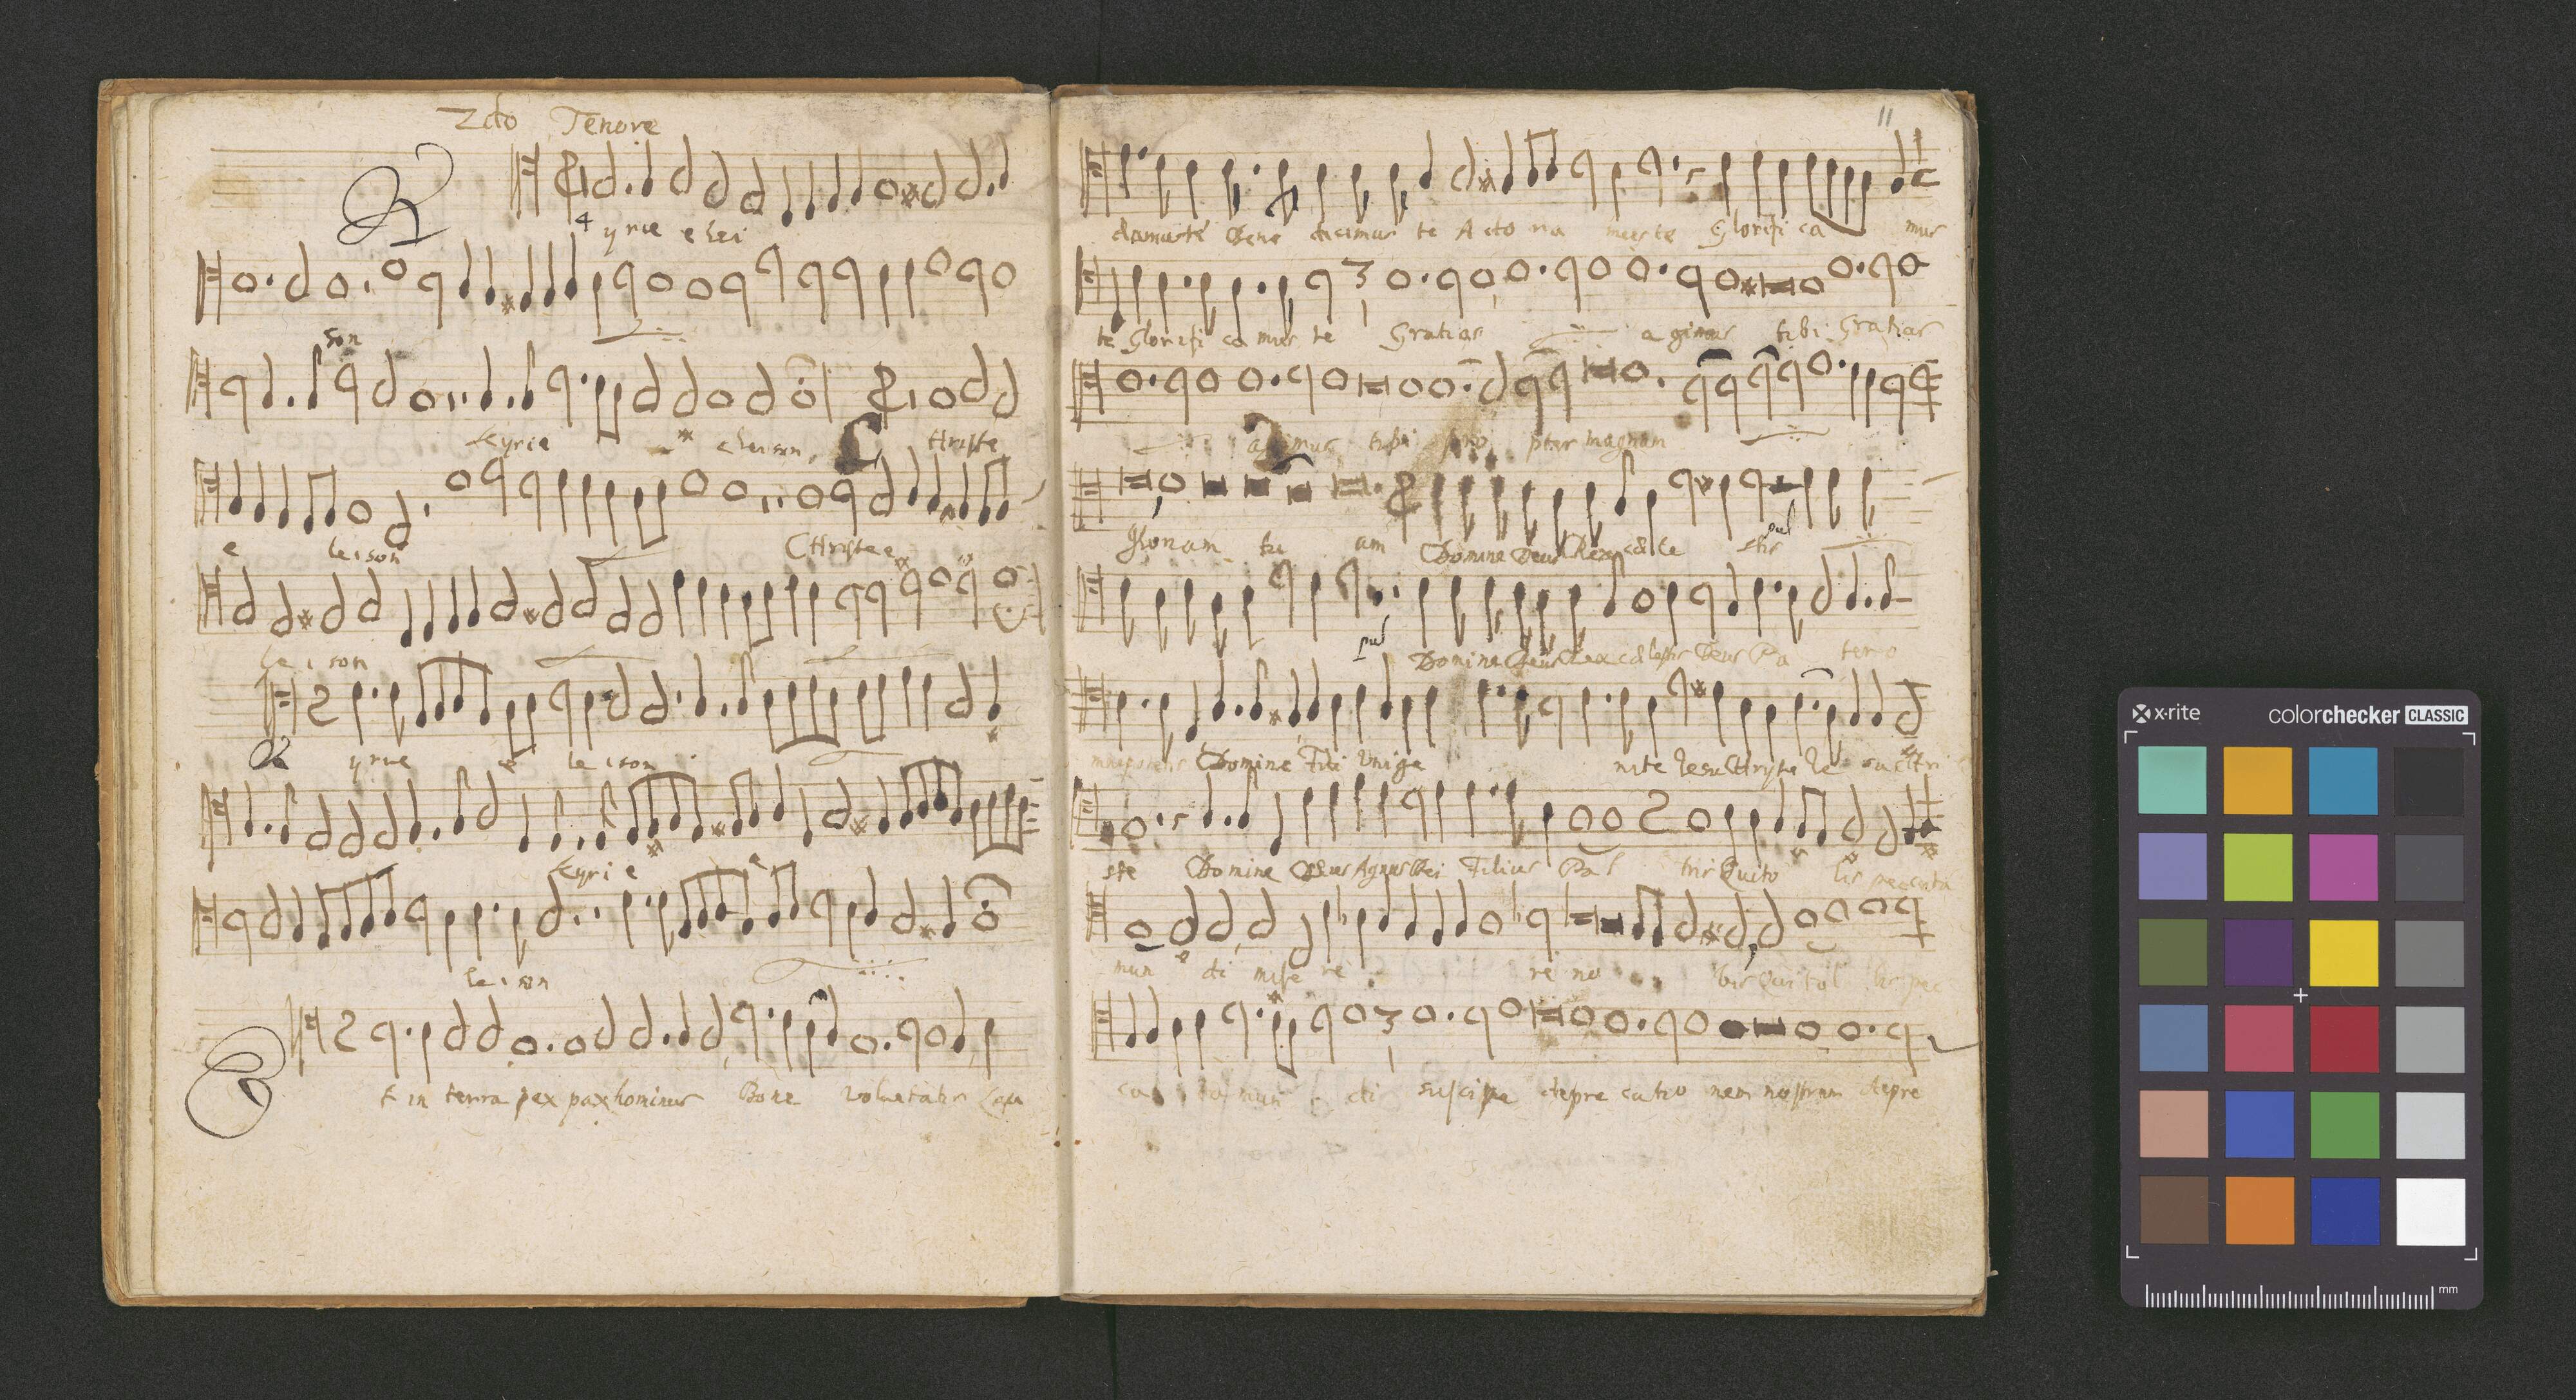 2do Tenore
K yrie elei
son
Kyrie eleison, C Hriste
e leison CHriste e
le i son
K yrie e le ison
Kyri e
le i son
E t in terra pax pax hominus Bone voluntatis Lau
11
damus te Bene dicimus te Ado ra mus te Glorifi ca mus
te Glorifi ca mus te Gratias a gimus tibi Gratias
agimus tibi pro pter magnam
Gloriam tu am Domine Deus Rex cæle stis
Domine Deus Rex cælestis Deus Pa ter o
mnipotens Domine Fili Unige nite Iesu Christe Ie su Chri
ste Domine Deus Agnus Dei Filius Pa tris Qui to lis peccata
mun di mise re re no bis Qui tol lis pec
ca ta mun di suscipe depre catio nem nostram depre
x·rite colorchecker CLASSIC
mm